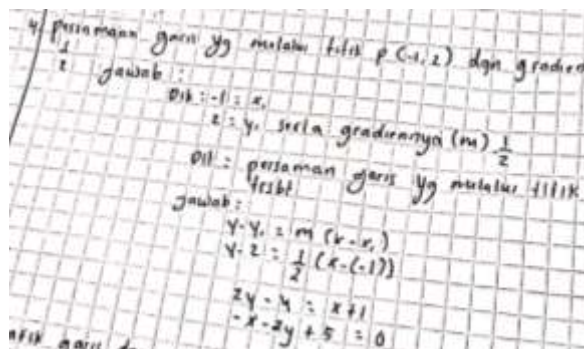 4/ persamaan garis yg melalui titik P (-1, 2) dgn gradien
1/2
jawab :
Dik : -1 = x₁
2 = y₁ serta gradiennya (m) 1/2
Dit : persaman garis yg melalui titik
tsbt
Jawab :
y - y₁ = m (x - x₁)
y - 2 = 1/2 (x - (-1))
2y - 4 = x + 1
-x - 2y + 5 = 0
garis